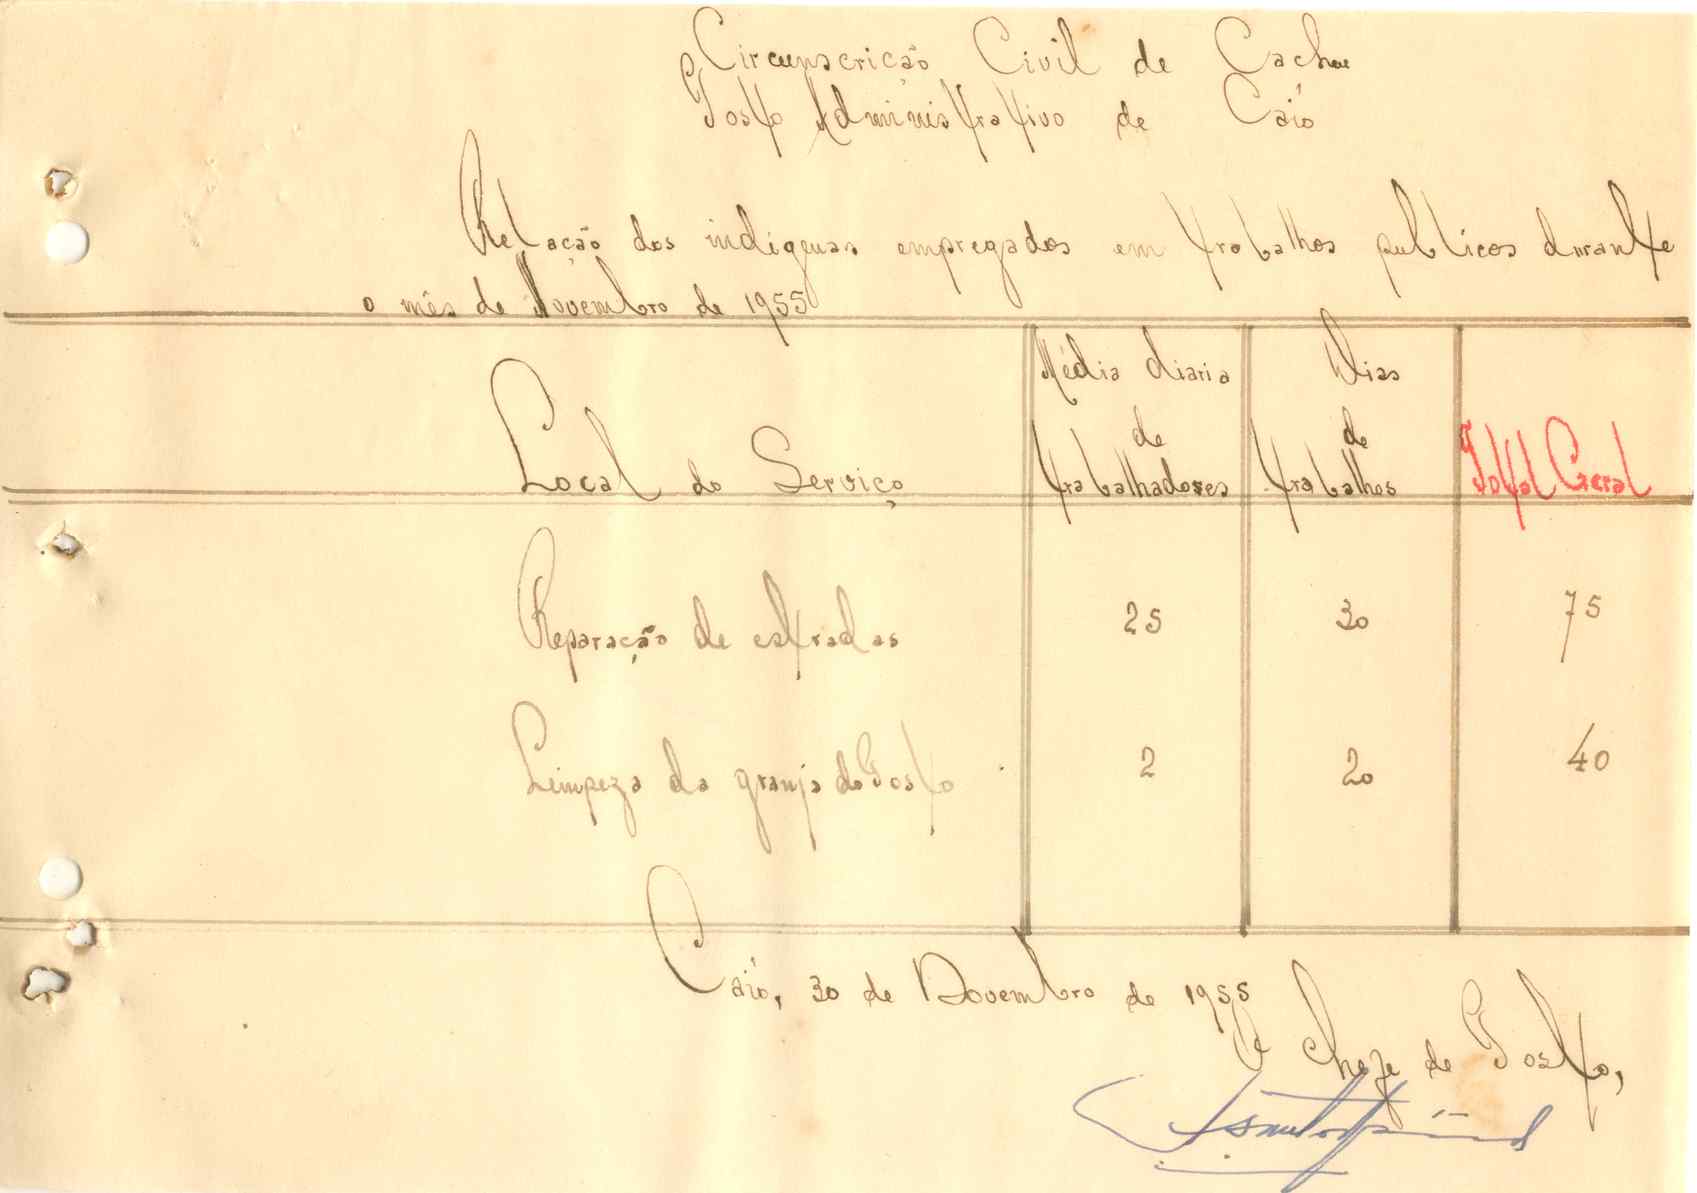 Circunscrição Civil de Cacheu
Posto Administrativo de Caió
Relação dos indigenas empregados em trabalhos publicos durante
o mês de Novembro de 1955
Local do Serviço
Média diaria de trabalhadores
Dias de trabalhos
Total Geral
Reparação de estradas 25 30 75
Limpeza da granja do Posto 2 20 40
Caió, 30 de Novembro de 1955
O Chefe de Posto,